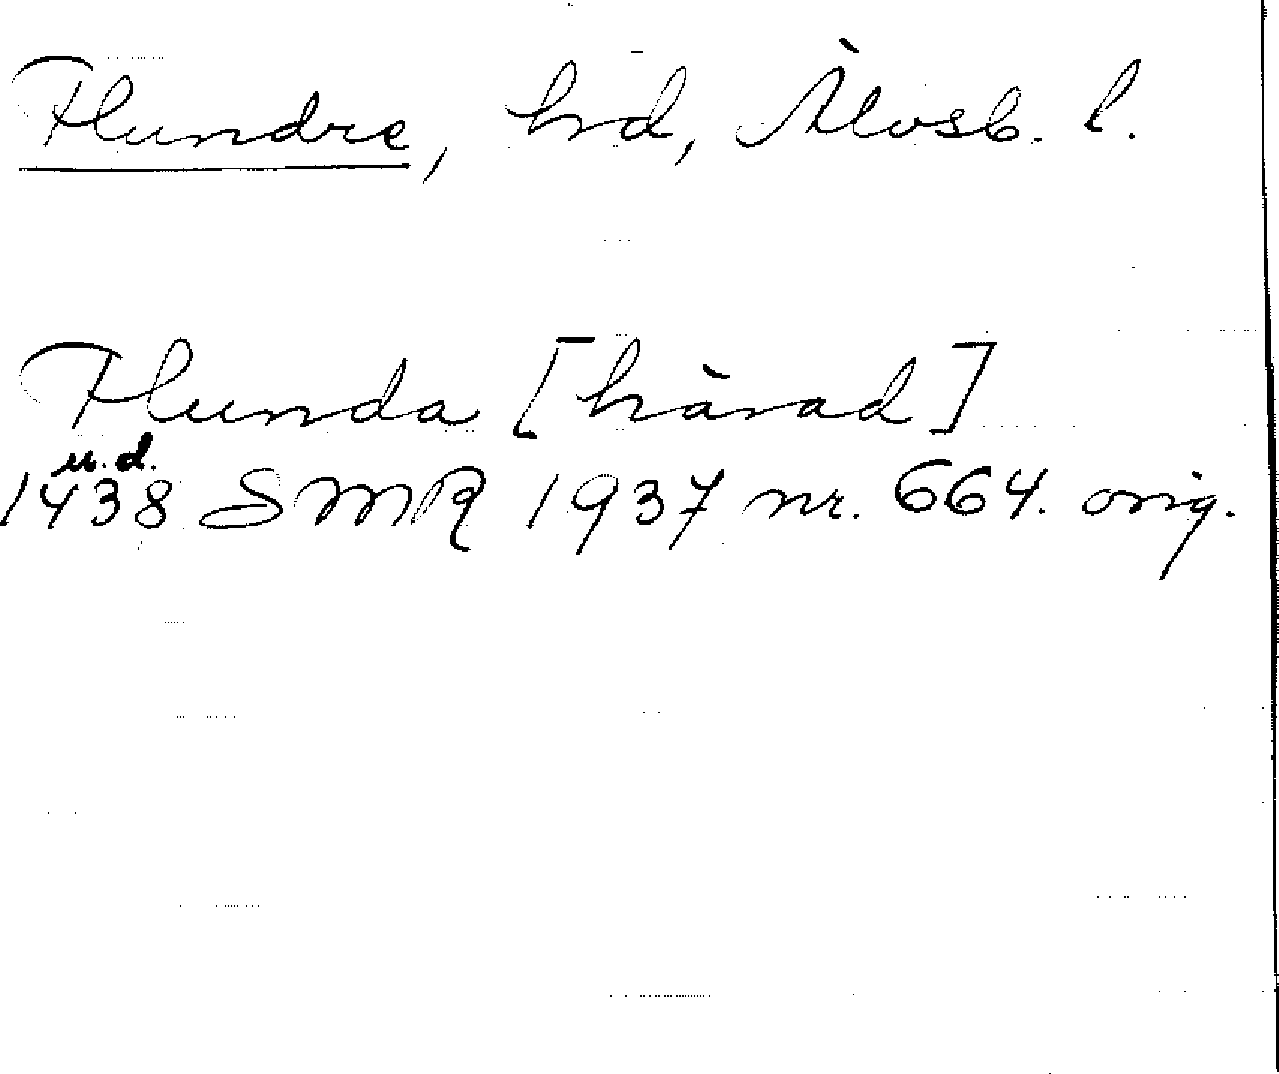 Flundre, hd, Älvsb. l.
Flunda [härad]
u.d.
1438 SMR 1937 nr. 664. orig.